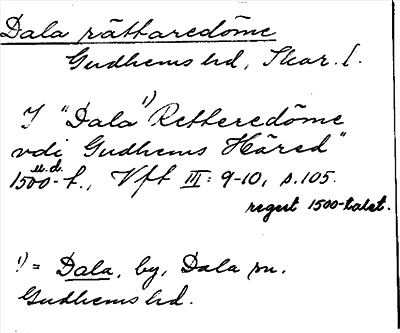 Dala rättaredöme
Gudhems hd, Skar. l.
I "Dala 1) Retteredöme
vdi Gudhems Häred"
u.d.
1500-t., Vft III: 9-10, s. 105.
regest 1500-talet.
1) = Dala, by, Dala sn.
Gudhems hd.